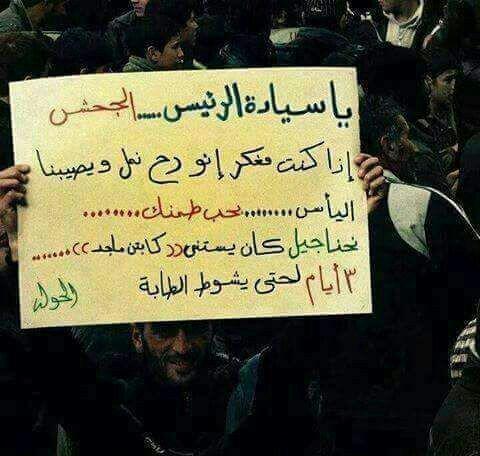 يا سيادة الرئيس.....الجحش
إذا كنت مفكر إنو رح نمل ويصيبنا
اليأس ........ نحب طمنك ........
نحنا جيل كان يستنى (( كابتن ماجد )) ......
٣ أيام لحتى يشوط الطابة
الحولة